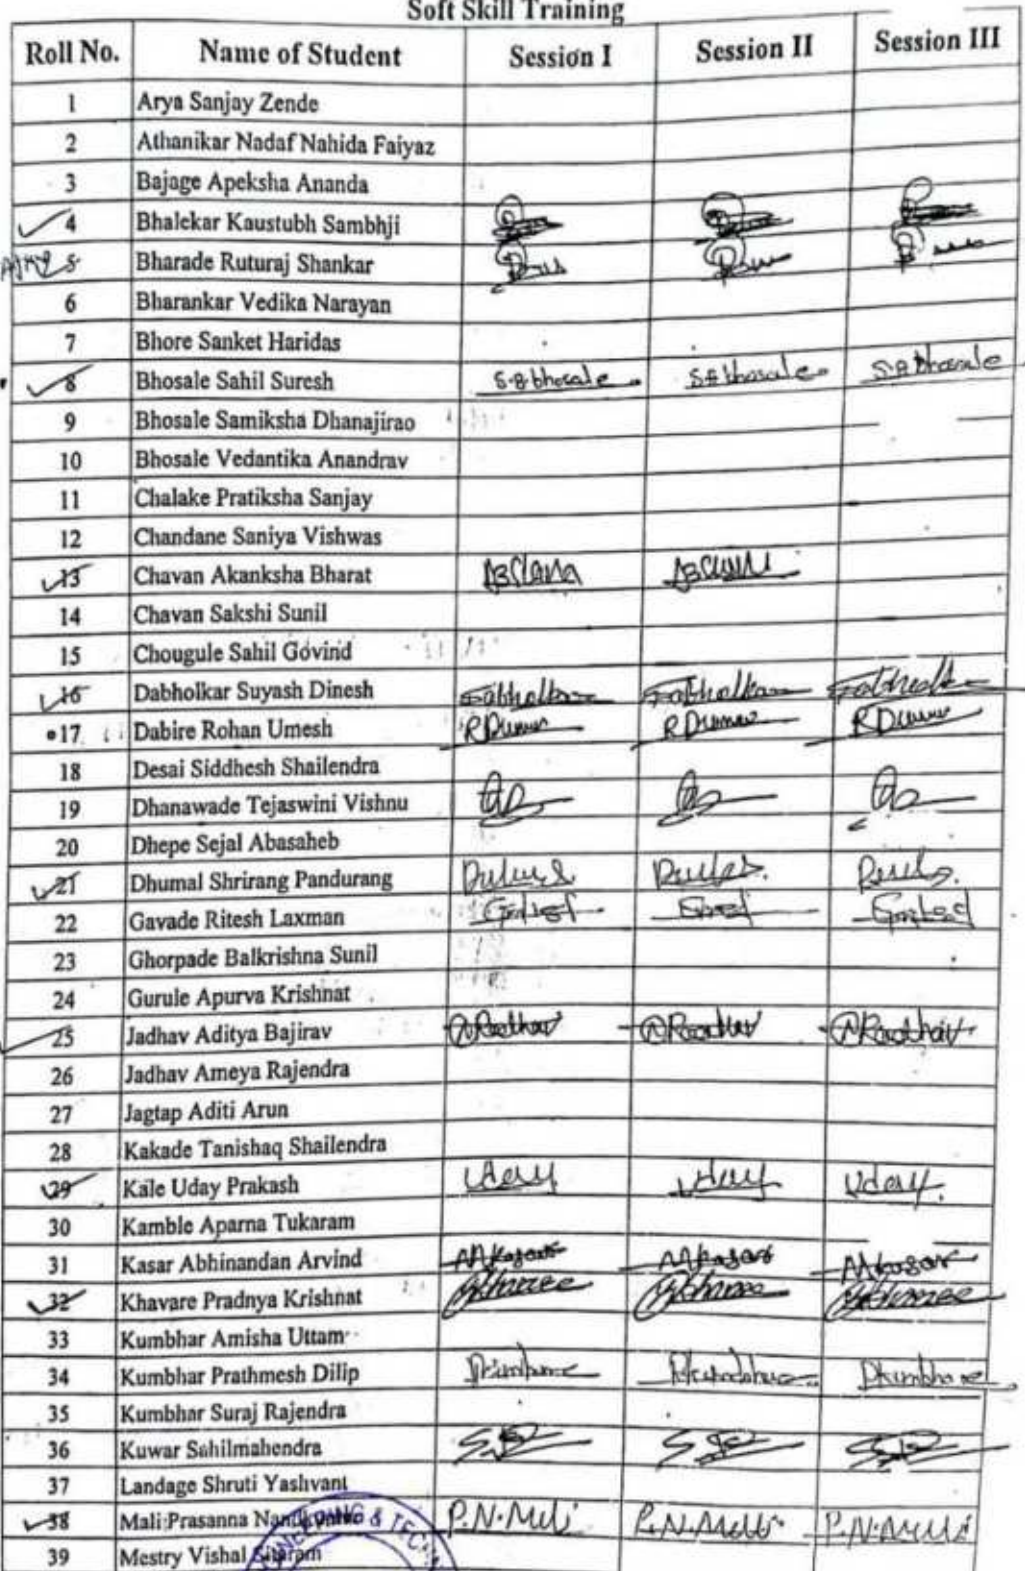 Soft Skill Training
Roll No. Name of Student Session I Session II Session III
1 Arya Sanjay Zende
2 Athanikar Nadaf Nahida Faiyaz
3 Bajage Apeksha Ananda
4 Bhalekar Kaustubh Sambhji
5 Bharade Ruturaj Shankar
6 Bharankar Vedika Narayan
7 Bhore Sanket Haridas
8 Bhosale Sahil Suresh S.B bhosale S.B bhosale S.B bhosale
9 Bhosale Samiksha Dhanajirao
10 Bhosale Vedantika Anandrav
11 Chalake Pratiksha Sanjay
12 Chandane Saniya Vishwas
13 Chavan Akanksha Bharat
14 Chavan Sakshi Sunil
15 Chougule Sahil Govind
16 Dabholkar Suyash Dinesh
17 Dabire Rohan Umesh
18 Desai Siddhesh Shailendra
19 Dhanawade Tejaswini Vishnu
20 Dhepe Sejal Abasaheb
21 Dhumal Shrirang Pandurang
22 Gavade Ritesh Laxman
23 Ghorpade Balkrishna Sunil
24 Gurule Apurva Krishnat
25 Jadhav Aditya Bajirav
26 Jadhav Ameya Rajendra
27 Jagtap Aditi Arun
28 Kakade Tanishaq Shailendra
29 Kale Uday Prakash Uday Uday Uday
30 Kamble Aparna Tukaram
31 Kasar Abhinandan Arvind AAkasar AAkasar AAkasar
32 Khavare Pradnya Krishnat
33 Kumbhar Amisha Uttam
34 Kumbhar Prathmesh Dilip
35 Kumbhar Suraj Rajendra
36 Kuwar Sahilmahendra
37 Landage Shruti Yashvant
38 Mali Prasanna P.N.Mali P.N.Mali P.N.Mali
39 Mestry Vishal Sitaram